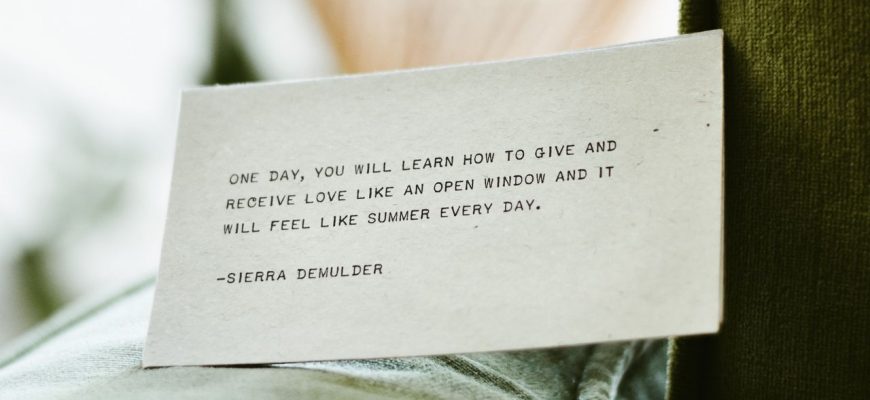 ONE DAY, YOU WILL LEARN HOW TO GIVE AND
RECEIVE LOVE LIKE AN OPEN WINDOW AND IT
WILL FEEL LIKE SUMMER EVERY DAY.
–SIERRA DEMULDER